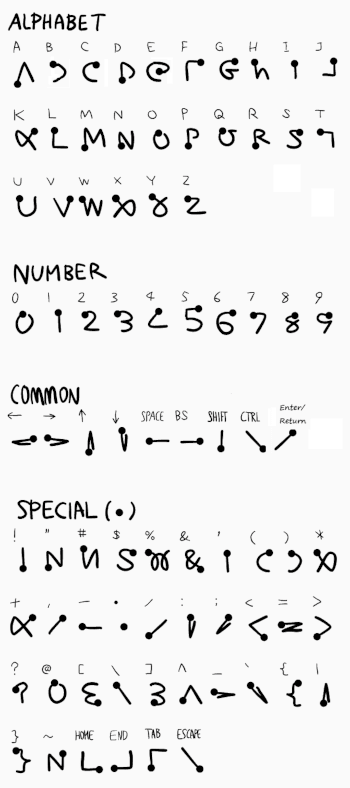 ALPHABET
A B C D E F G H I J
K L M N O P Q R S T
U V W X Y Z
NUMBER
0 1 2 3 4 5 6 7 8 9
COMMON
← → ↑ ↓ SPACE BS SHIFT CTRL Enter/
Return
SPECIAL (•)
! " # $ % & ' ( ) *
+ , - . / : ; < = >
? @ [ \ ] ^ _ ` { |
} ~ HOME END TAB ESCAPE